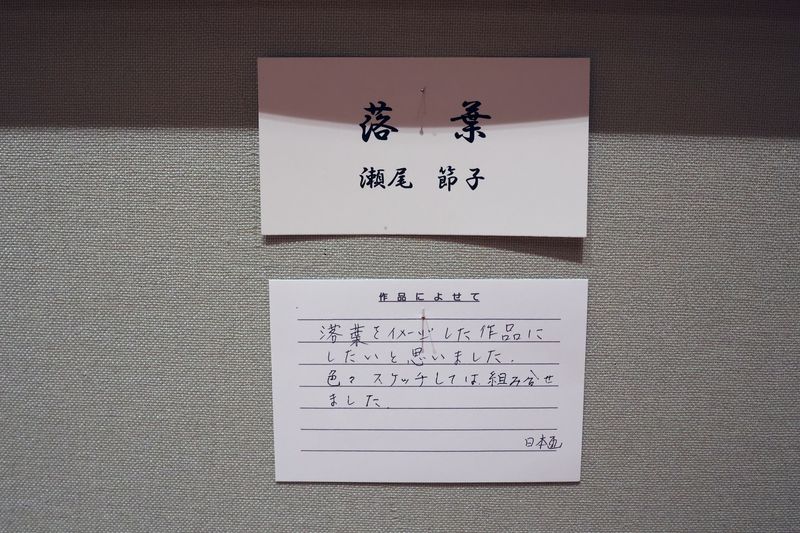 落葉
瀬尾 節子
作品によせて
落葉をイメージした作品に
したいと思いました.
色々スケッチしては組み合せ
ました.
日本画